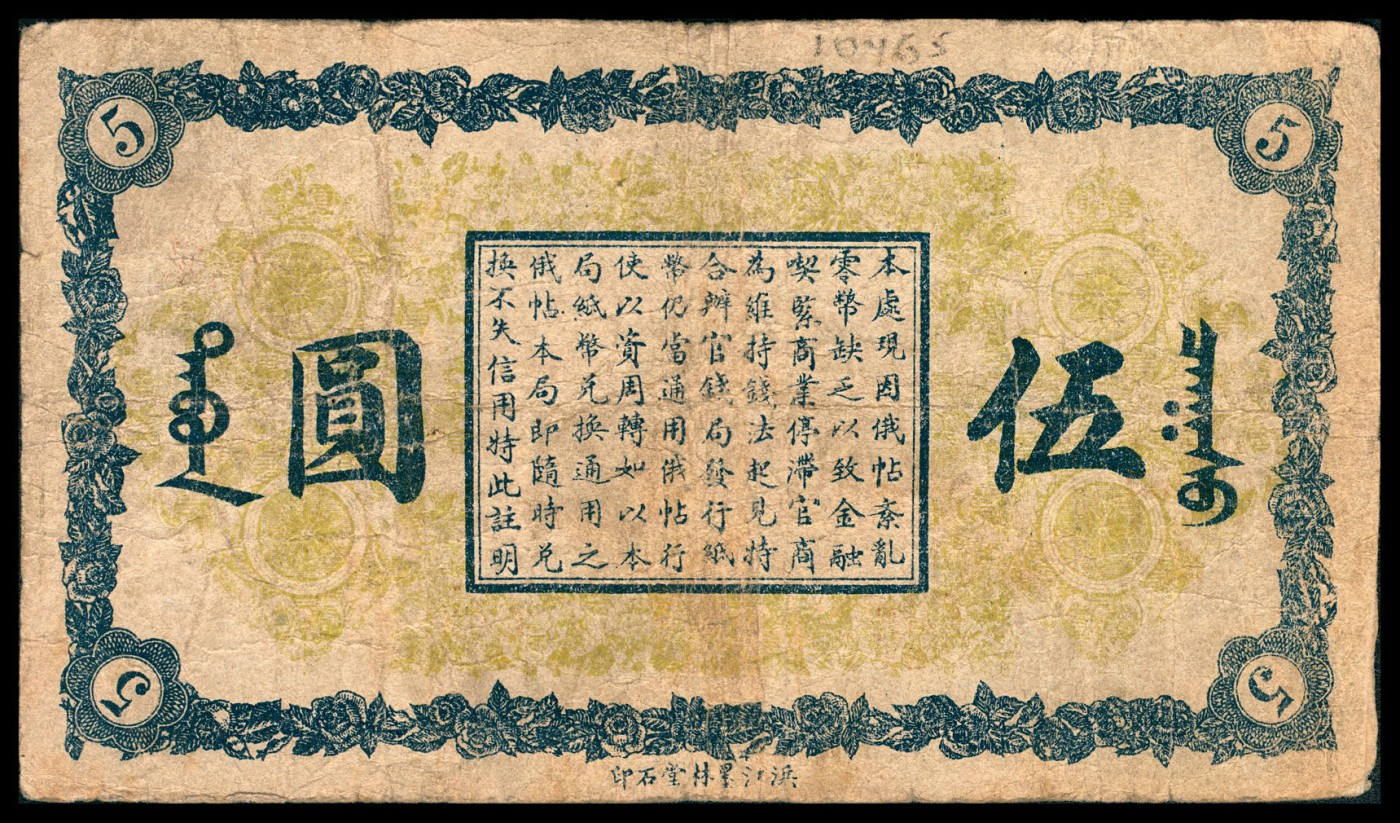 5
5
伍圓
本處現因俄帖紊亂
零幣缺乏以致金融
喫緊商業停滯官商
為維持錢法起見特
合辦官錢局發行紙
幣仍當通用俄帖行
使以資周轉如以本
局紙幣兌換通用之
俄帖本局即隨時兌
換不失信用特此註明
5
5
浜江墨林堂石印